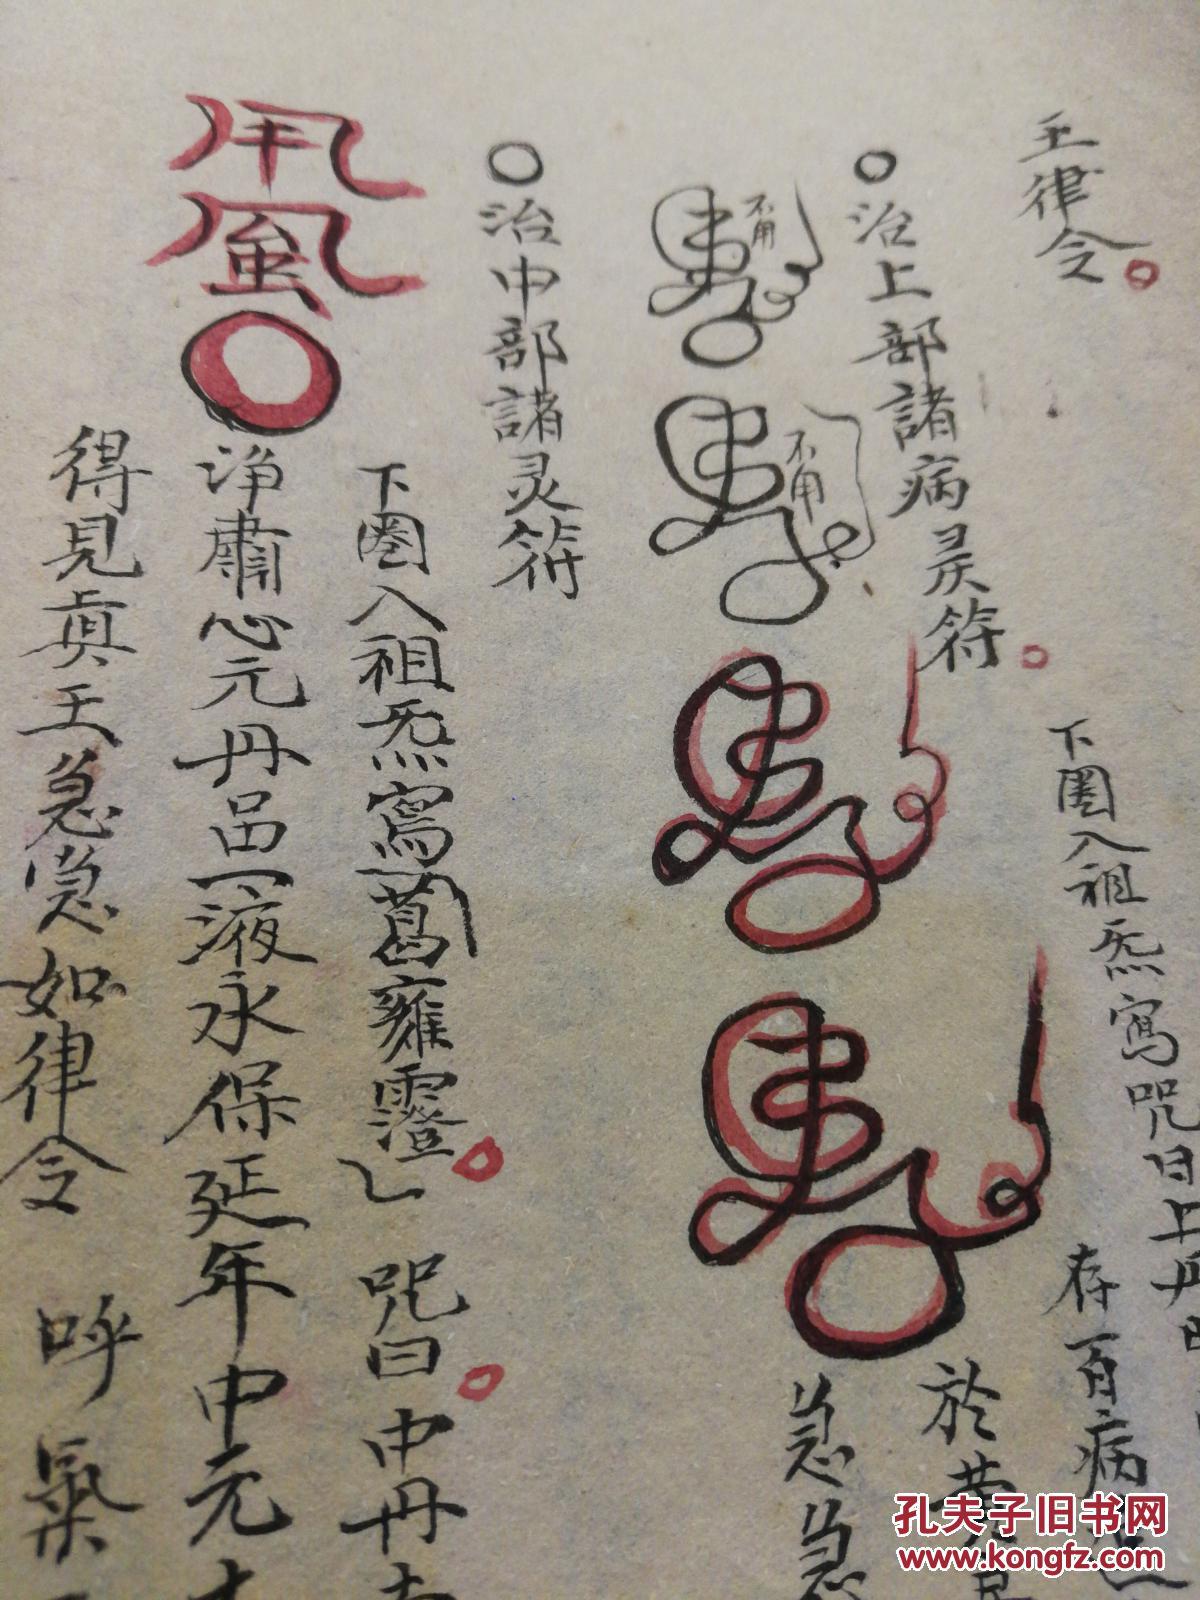 王律令
治上部諸病灵符
下圈入祖炁寫咒曰上丹
存百病
於黄
急急
不用
不用
治中部諸灵符
下圈入祖炁寫葛雍霪乚咒曰中丹
净肅心元丹邑一液永保延年中元
得見眞王急急如律令 呼氣
孔夫子旧书网
www.kongfz.com